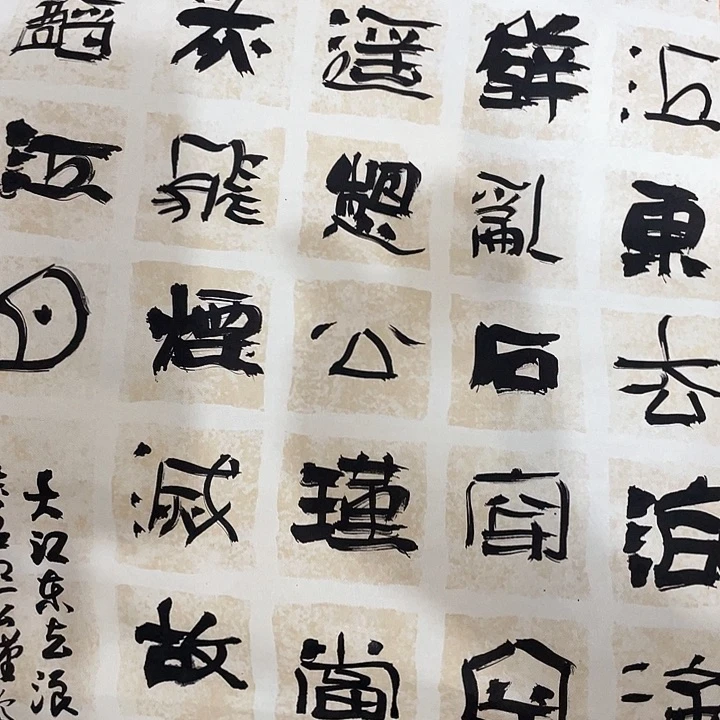 江東去浪淘
壁亂石穿空
遙想公瑾當
灰飛煙滅故
酹江月
大江东去浪